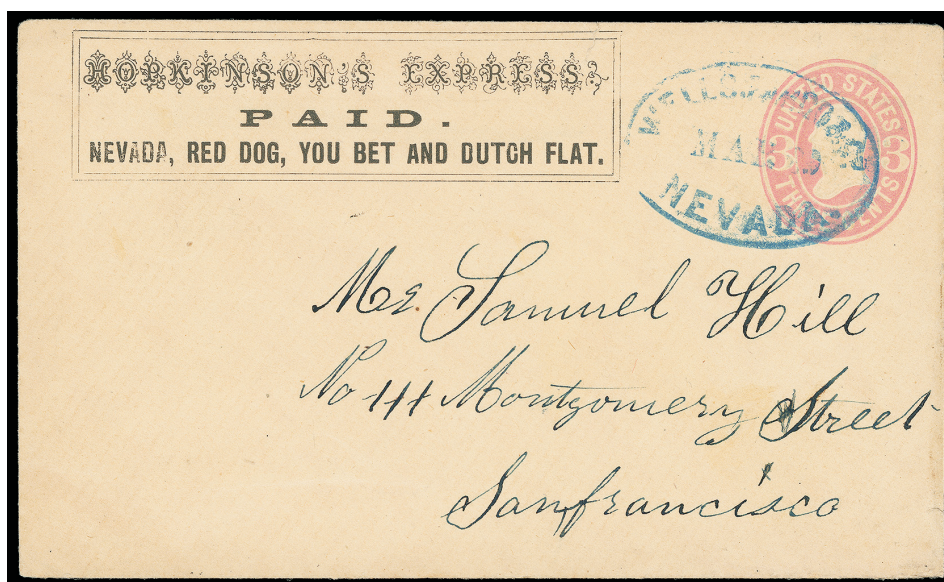 HOPKINSON'S EXPRESS.
PAID.
NEVADA, RED DOG, YOU BET AND DUTCH FLAT.
WELLS, FARGO & CO
MAR
NEVADA.
UNITED STATES
3 3
THREE CENTS
Mr. Samuel Hill
No 414 Montgomery Street
Sanfrancisco